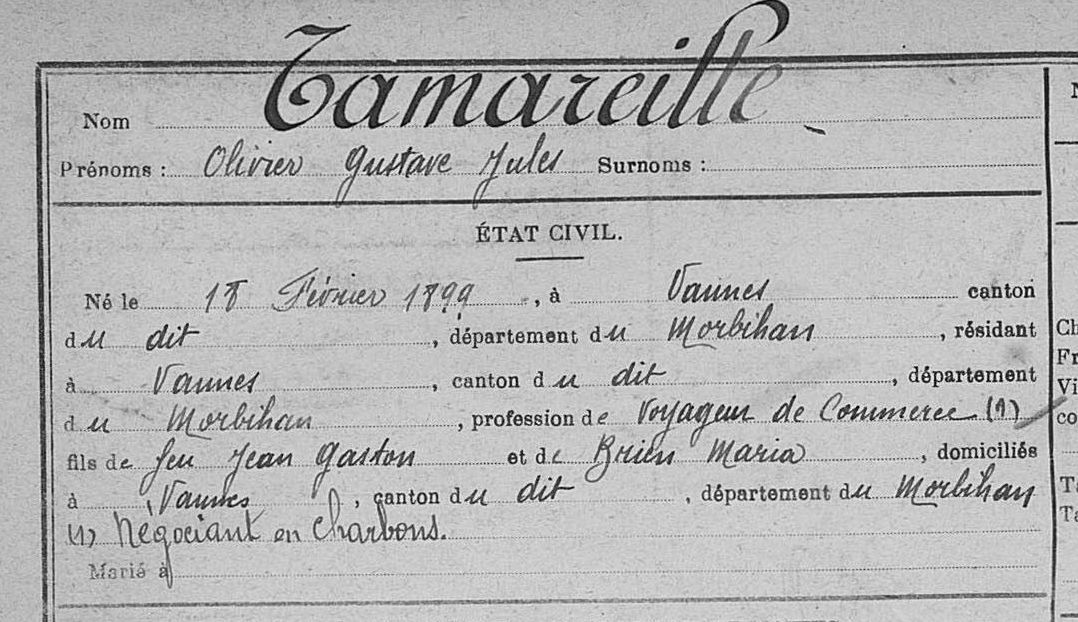 Nom Tamareille
Prénoms : Olivier Gustave Jules Surnoms :
ÉTAT CIVIL.
Né le 18 Février 1899, à Vannes canton
du dit, département du Morbihan, résidant
à Vannes, canton du dit, département
du Morbihan, profession de Voyageur de Commerce (1)
fils de feu Jean Gaston et de Brien Maria, domiciliés
à Vannes, canton du dit, département du Morbihan
(1) Négociant en charbons.
Marié à